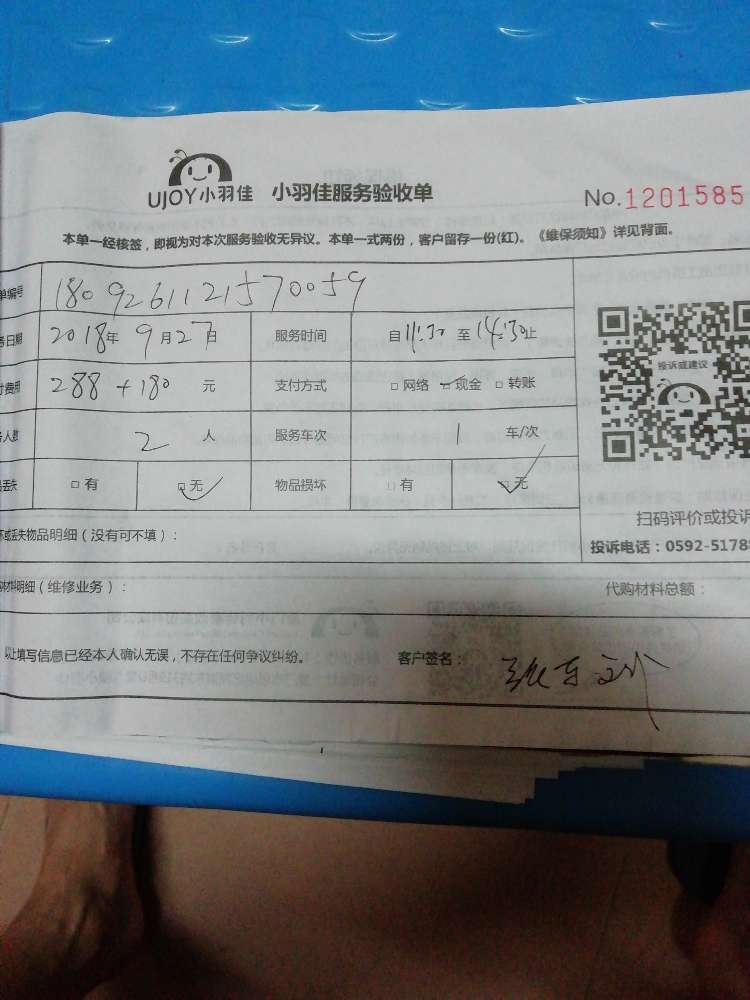 UJOY小羽佳 小羽佳服务验收单 No.1201585
本单一经核签，即视为对本次服务验收无异议。本单一式两份，客户留存一份(红)。《维保须知》详见背面。
单编号 1809261121570059
务日期 2018年9月27日 服务时间 自11:30至14:30止
付费用 288+180 元 支付方式 □网络 ☑现金 □转账
投诉或建议
务人数 2 人 服务车次 1 车/次
品丢失 □有 ☑无 物品损坏 □有 ☑无
坏或丢失物品明细（没有可不填）：
扫码评价或投诉
投诉电话：0592-5178
材料明细（维修业务）： 代购材料总额：
以上填写信息已经本人确认无误，不存在任何争议纠纷。 客户签名：